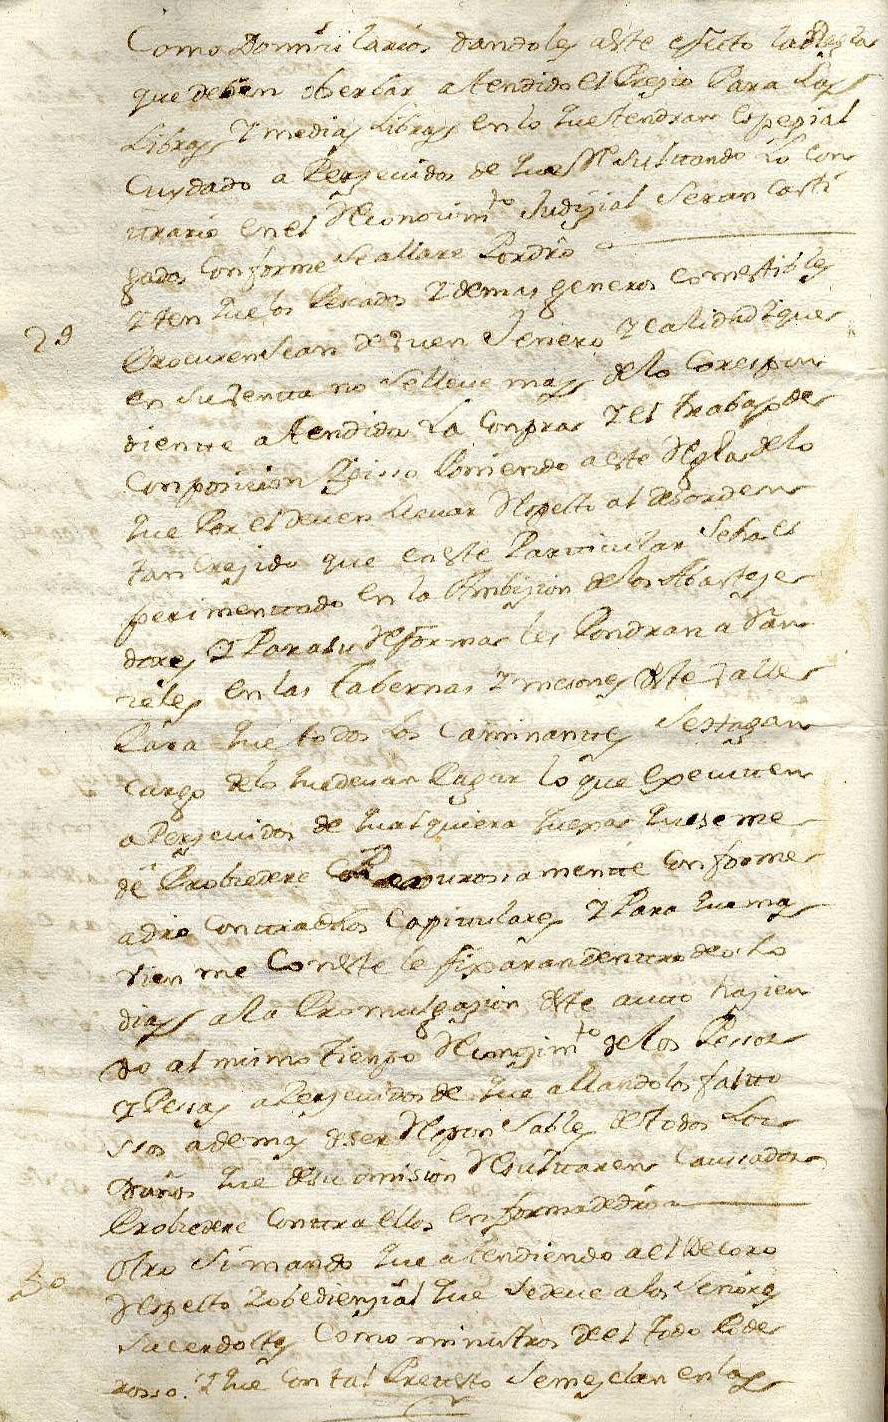 Como Domisiliarios dandoles aeste efecto la Regla
que deben oberbar atendido el Presio Para Las
Libras Y medias Libras en lo que tendran Espesial
Cuydado a Persevidos de que Resultando lo Con
trario en el Reconosim.to Judisial Seran Casti
gados Conforme Se allare Pordro
29 Yten que los Pescados Y demas generos Comestibles
Procuren Sean de buen Genero Y calidad Y que
en Su benta no Se lleve mas de lo Corespon
diente atendida La Compra Y el trabajo de
Composision Poniendo a este Reglas de lo
que Por el deven Llevar Respecto al desorden
tan Cresido que en este Particular Se ha es
perimentado en la Ambision de los Abastese
dores Y Para su Reforma les Pondran a Ran
seles en las tabernas Y mesones deste Valle
Para que todos los Caminantes Se agan
Cargo de lo que devan Pagar lo que Executen
a Persevidos de qualquiera quexa que se me
de Probedere Rigurosamente Conforme
adro Contra dhos Capitulares Y Para que mas
bien me Conste le fixaran dentro de ocho
dias a la Promulgasion deste auto hasien
do al mismo tiempo Reconosim.to de los Pessos
Y Pessas a Persevidos de que allandolos falto
ssos ademas de ser Responsables de todos Los
Daños que de su omision Resultaren Causados
Probedere Contra ellos en forma de dro
30 Otro Si mando que atendiendo a el Decoro
Respecto Y obediensia que Se deve a los Señores
Sacerdotes Como ministros de el todo Pode
rosso. Y que Con tal Pretesto Se mesclan en las